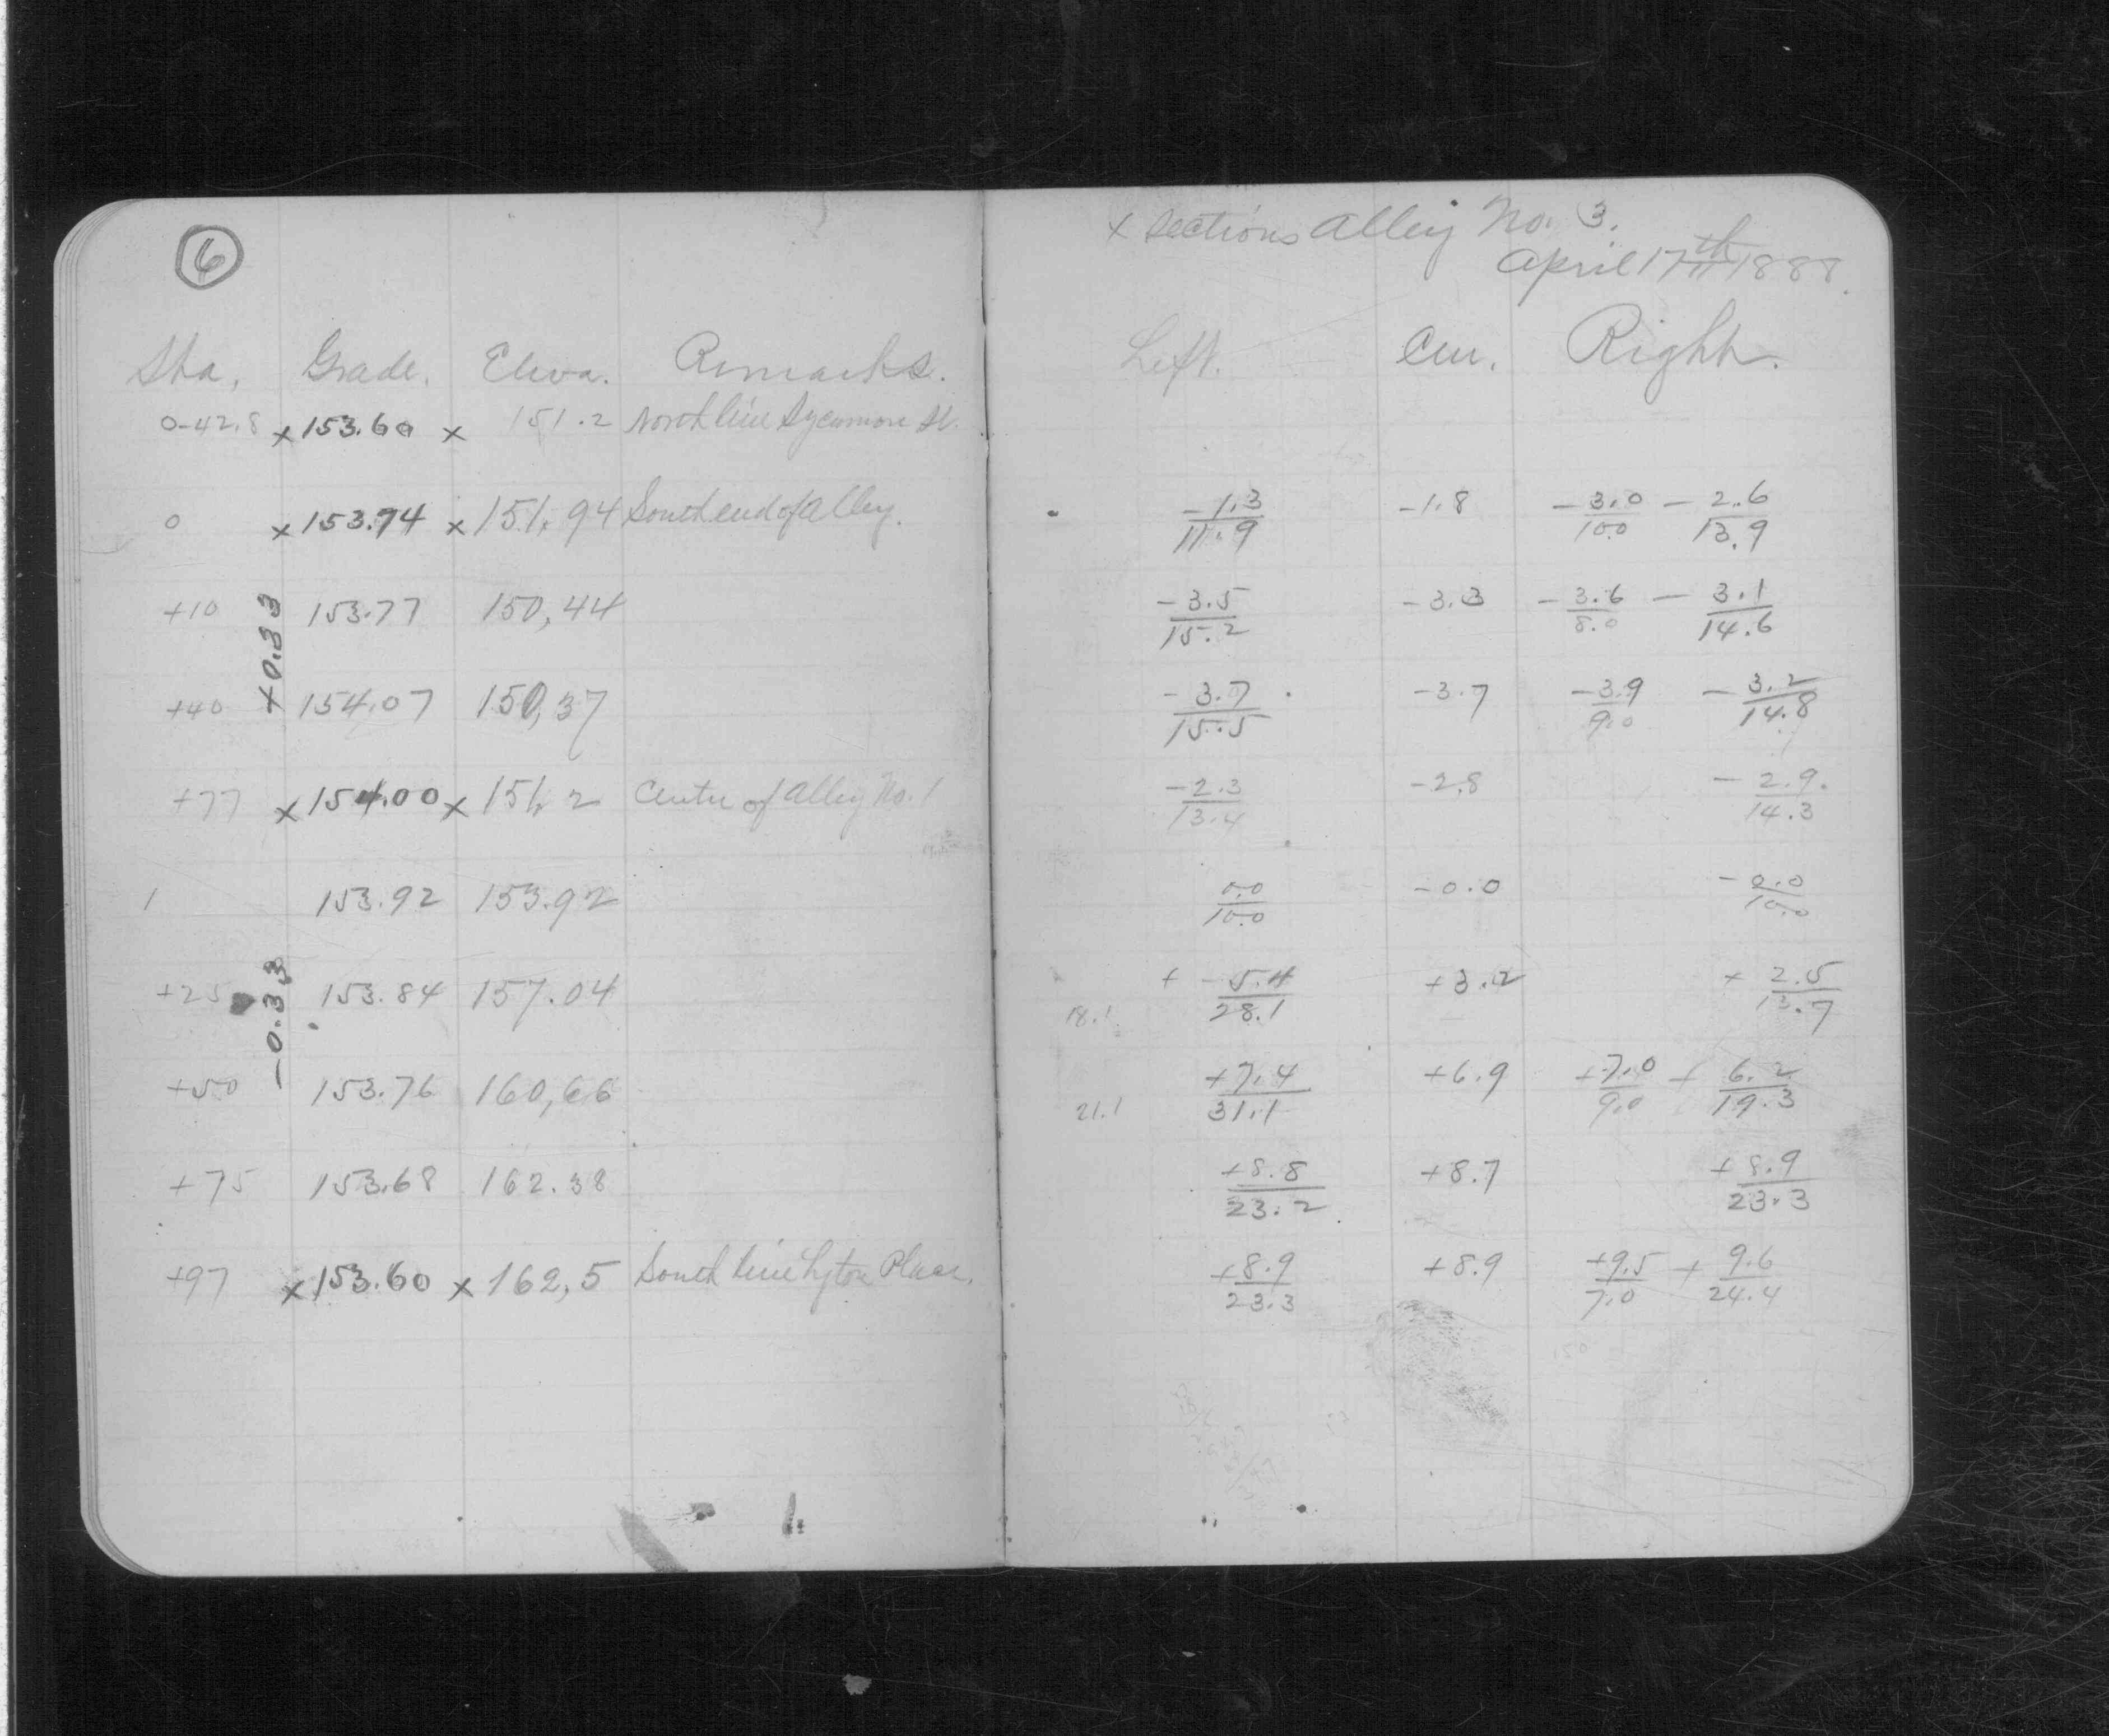 6
x Sections Alley No. 3.
April 17th 1888.
Sta. Grade. Eleva. Remarks. Left. Cen. Right.
0-42.8 x 153.60 x 151.2 North line Sycamore St.
0 x 153.74 x 151.94 South end of Alley. -1.3/11.9 -1.8 -3.0/10.0 -2.6/13.9
+0.33
+10 153.77 150.44 -3.5/15.2 -3.3 -3.6/8.0 -3.1/14.6
+40 154.07 150.37 -3.7/15.5 -3.7 -3.9/9.0 -3.2/14.8
+77 x 154.00 x 151.2 Centre of Alley No. 1 -2.3/13.4 -2.8 -2.9/14.3
1 153.92 153.92 0.0/10.0 -0.0 -0.0/10.0
-0.33
+25 153.84 157.04 18.1 + 5.4/28.1 +3.2 +2.5/13.7
+50 153.76 160.66 21.1 +7.4/31.1 +6.9 +7.0/9.0 +6.2/19.3
+75 153.68 162.38 +8.8/23.2 +8.7 +8.9/23.3
+97 x 153.60 x 162.5 South line Lyton Place. +8.9/23.3 +8.9 +9.5/7.0 +9.6/24.4